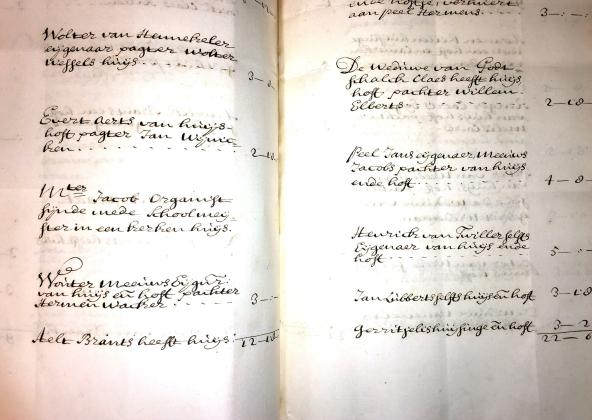 Wolter van Hennekeler
eijgenaar pagter Wolter
Wessels huijs
3 —
Evert Aerts van huijs
hoff pagter Jan Wijnic
ken
2 - 10
Mter Jacob Organist
sijnde mede Schoolmeij-
ster in een kerken huijs.
Wouter Meeuws Eijgnr:
van huijs en hoff pachter
Hermen Wacker
3 —
Aelt Brants heefft huijs
12 - 10
aan peel Hermens
3 — : — :
De weduwe van Godt
schalck Claes heefft huijs
hoff pachter willem
Elberts
2 - 18 -
peel Jans eijgenaer Meeuws
Jacobs pachter van huijs
ende hoff
4 — 8 -
Henrick van Twiller selfs
Eijgenaer van huijs ende
hoff
5 —
Jan Lubberts selfs huijs en hoff
3 — 18
Gerrit selfs en hoff
3 — 2
22 — 6